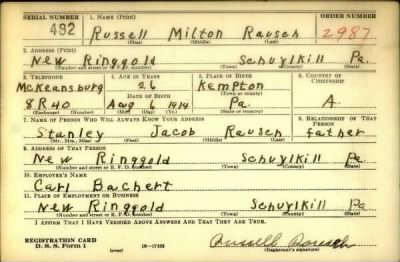 SERIAL NUMBER 1. NAME (Print) ORDER NUMBER
482 Russell Milton Rausch 2987
(First) (Middle) (Last)
2. ADDRESS (Print)
New Ringgold Schuylkill Pa.
(Number and street or R. F. D. number) (Town) (County) (State)
3. TELEPHONE 4. AGE IN YEARS 5. PLACE OF BIRTH 6. COUNTRY OF CITIZENSHIP
McKeansburg 26 Kempton
DATE OF BIRTH (Town or county)
8R40 Aug 6 1914 Pa. A.
(Exchange) (Number) (Mo.) (Day) (Yr.) (State or country)
7. NAME OF PERSON WHO WILL ALWAYS KNOW YOUR ADDRESS 8. RELATIONSHIP OF THAT PERSON
Stanley Jacob Rausch father
(Mr., Mrs., Miss) (First) (Middle) (Last)
9. ADDRESS OF THAT PERSON
New Ringgold Schuylkill Pa
(Number and street or R. F. D. number) (Town) (County) (State)
10. EMPLOYER'S NAME
Carl Bachert
11. PLACE OF EMPLOYMENT OR BUSINESS
New Ringgold Schuylkill Pa
(Number and street or R. F. D. number) (Town) (County) (State)
I AFFIRM THAT I HAVE VERIFIED ABOVE ANSWERS AND THAT THEY ARE TRUE.
REGISTRATION CARD
D. S. S. Form 1 (over) 16-17105 Russell Rausch
(Registrant's signature)